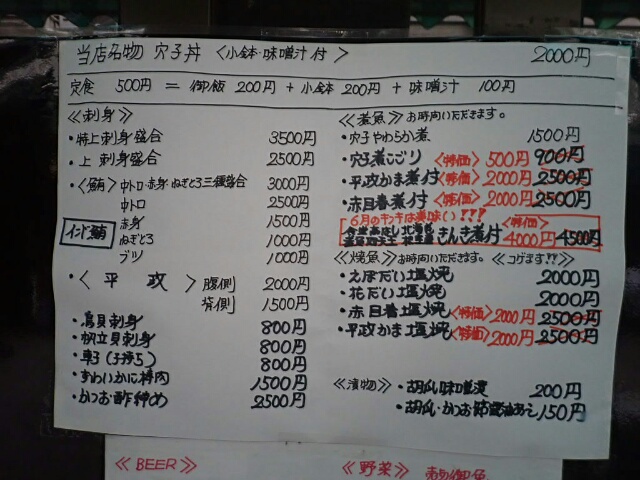 当店名物 穴子丼 <小鉢・味噌汁付> 2000円
定食 500円 = 御飯 200円 + 小鉢 200円 + 味噌汁 100円
≪刺身≫
・特上刺身盛合 3500円
・上 刺身盛合 2500円
・<鮪> 中トロ・赤身・ねぎとろ三種盛合 3000円
中トロ 2500円
赤身 1500円
インド鮪
ねぎとろ 1000円
ブツ 1000円
・< 平 政 > 腹側 2000円
背側 1500円
・鳥貝刺身 800円
・帆立貝刺身 800円
・(子持ち) 800円
・ずわいかに棒肉 1500円
・かつお酢〆め 2500円
≪煮魚≫お時間いただきます。
・穴子やわらか煮 1500円
・穴子煮こごり <特価> 500円 900円
・平政かま煮付 <特価> 2000円 2500円
・赤目春煮付 <特価> 2000円 2500円
6月のキンキは美味い!!!
<特価>
北海道 きんき煮付 4000円 4500円
≪焼魚≫お時間いただきます。≪コゲます!!≫
・えぼだい塩焼 2000円
・花だい塩焼 2000円
・赤目春塩焼 <特価> 2000円 2500円
・平政かま塩焼 <特価> 2000円 2500円
≪漬物≫
・胡瓜味噌漬 200円
・胡瓜・かつお節醤油あえ 150円
≪BEER≫
≪野菜≫